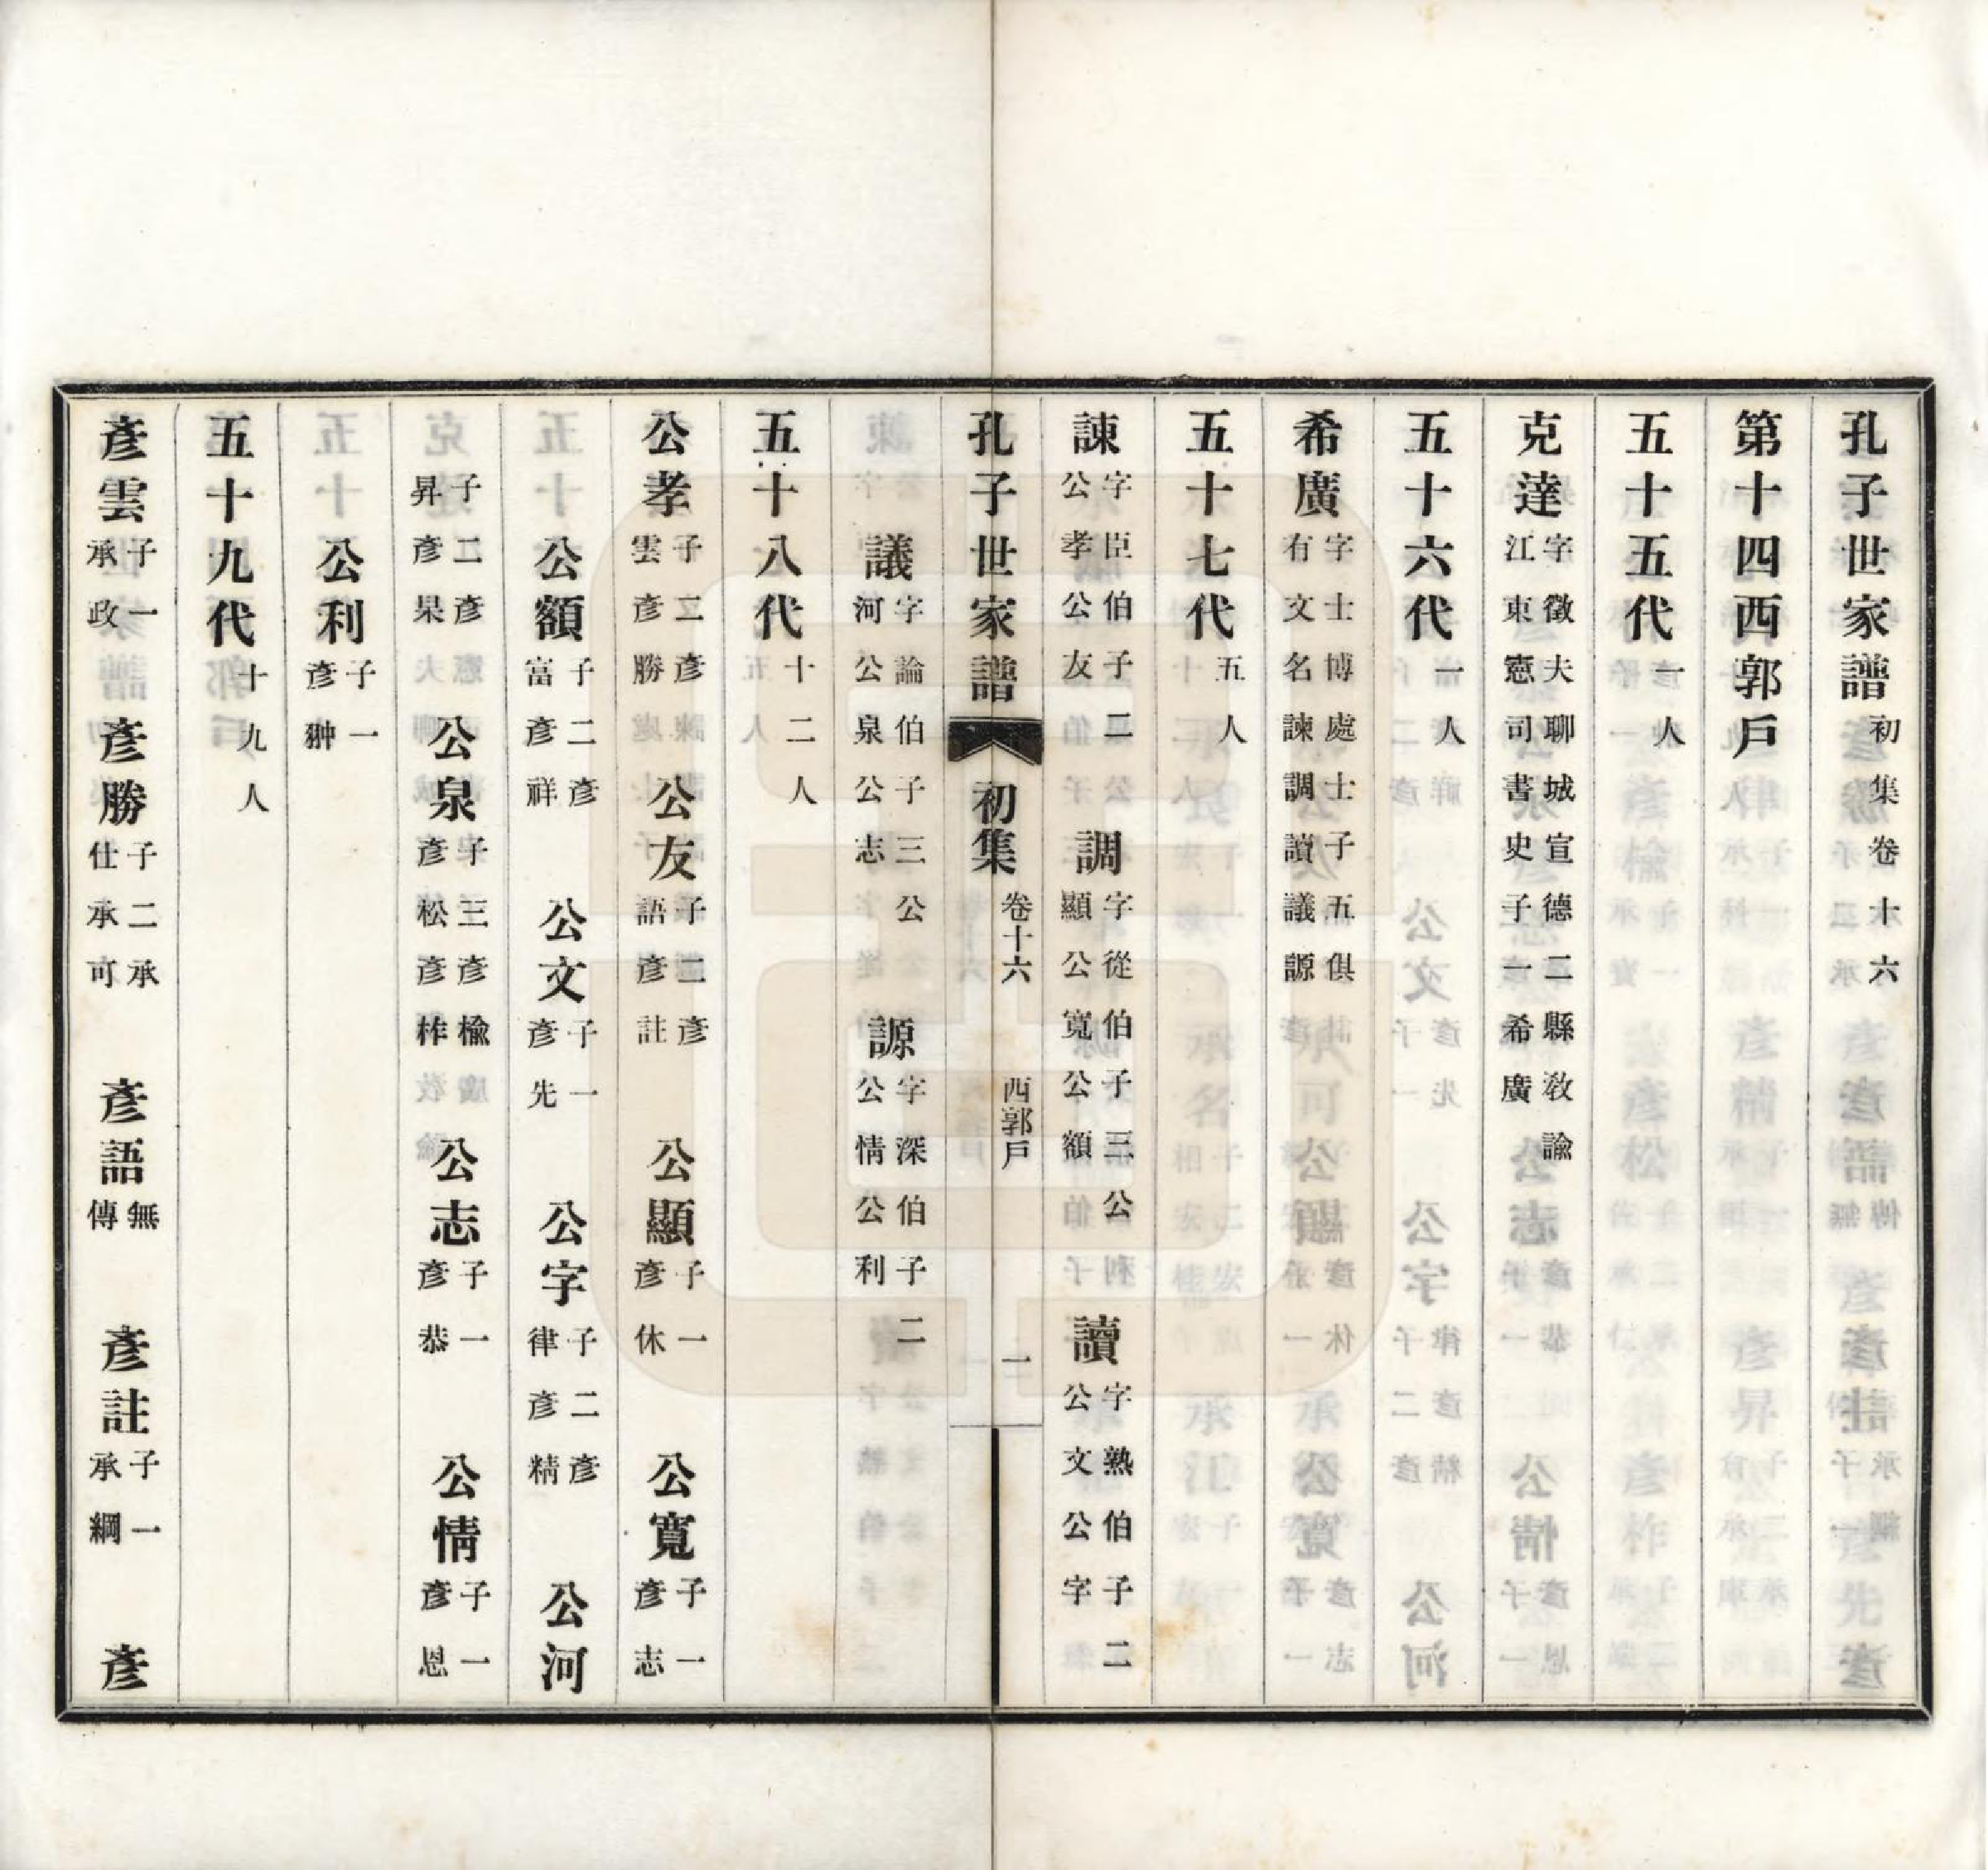 孔子世家譜初集卷十六
第十四西郭戶
五十五代一人
克達字徵夫聊城宣德二縣教諭江東憲司書史子一希廣
五十六代一人
希廣字士博處士子五俱有文名諫調讀議謜
五十七代五人
諫字臣伯子二公孝公友 調字從伯子三公顯公寬公額 讀字熟伯子二公文公字
孔子世家譜 初集 卷十六 西郭戶 一
議字論伯子三公河公泉公志 謜字深伯子二公情公利
五十八代十二人
公孝子二彥雲彥勝 公友子二彥語彥註 公顯子一彥休 公寬子一彥志
公額子二彥富彥祥 公文子一彥先 公字子二彥律彥精 公河
子二彥昇彥杲 公泉子三彥楡彥松彥柞 公志子一彥恭 公情子一彥恩
公利子一彥翀
五十九代十九人
彥雲子一承政 彥勝子二承仕承可 彥語無傳 彥註子一承綱 彥